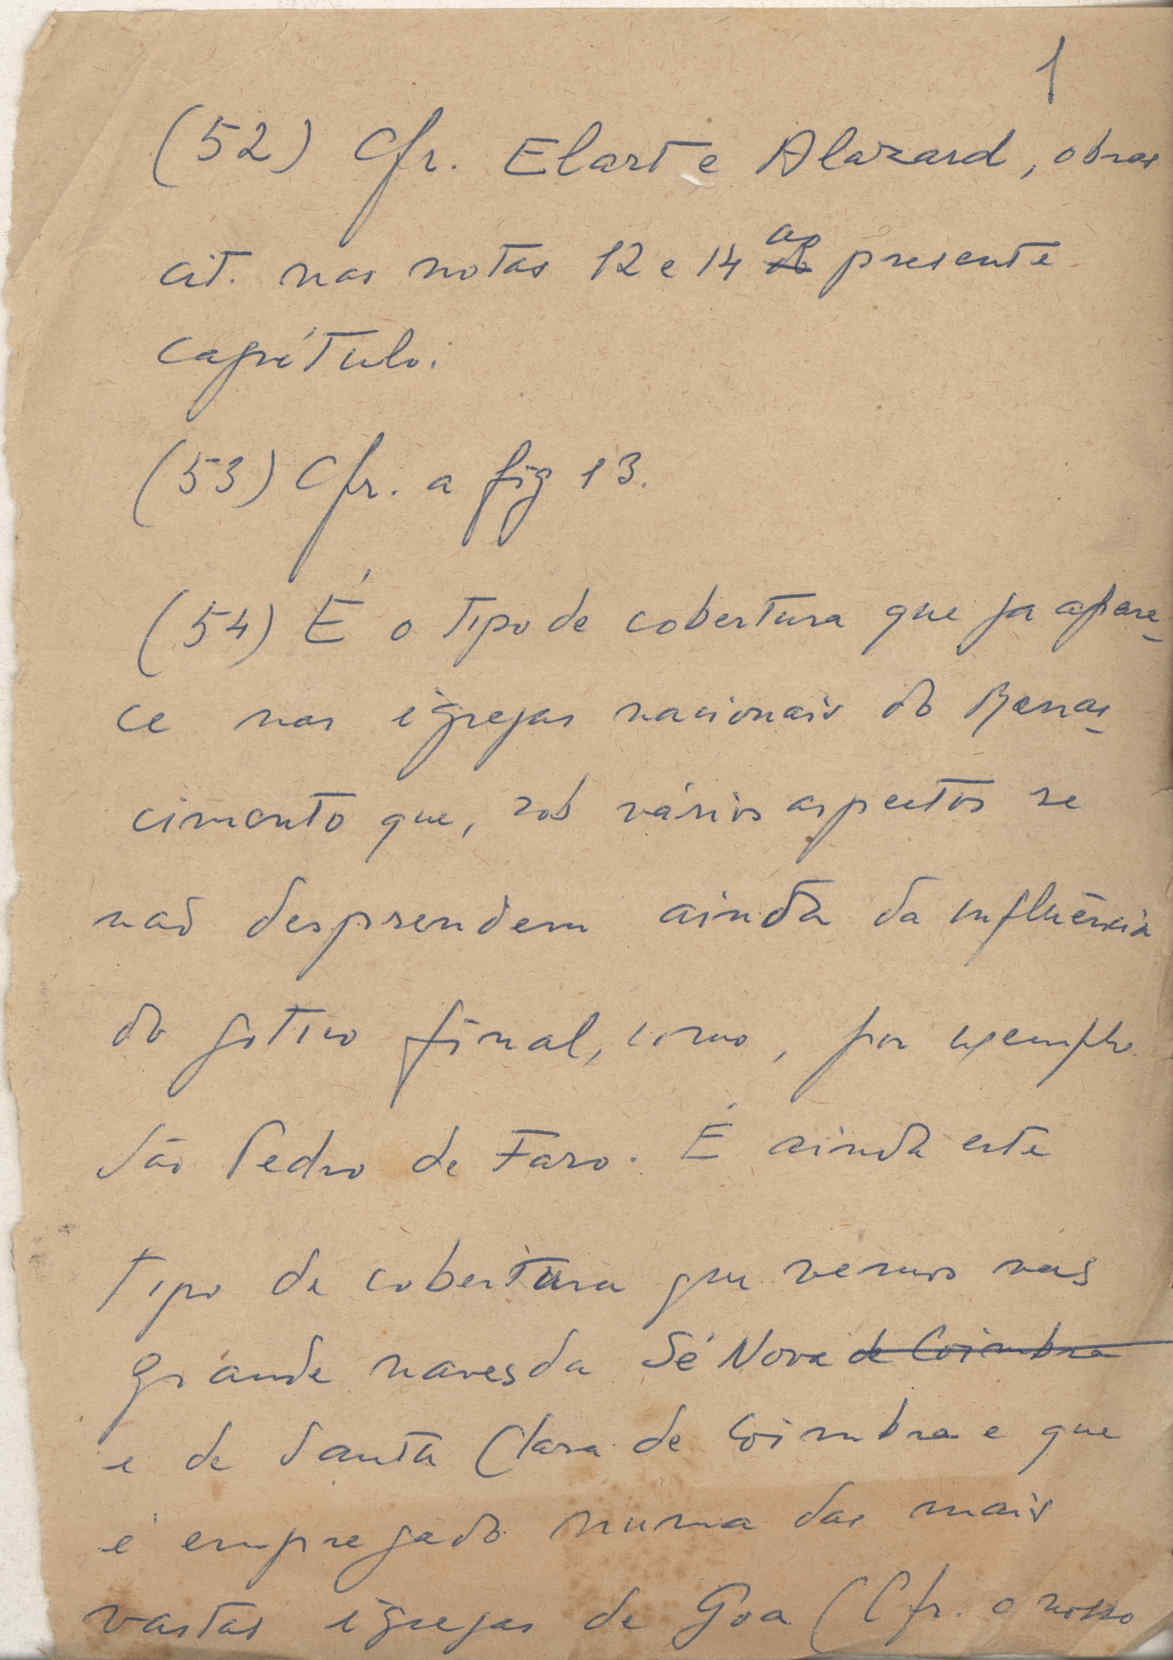 1
(52) Cfr. Elart e Alazard, obras
cit. nas notas 12 e 14 ao presente
capítulo.
(53) Cfr. a fig 13.
(54) É o tipo de cobertura que ja apare-
ce nas igrejas nacionais do Renas-
cimento que, sob vários aspectos se
não desprendem ainda da influência
do gotico final, como, por exemplo
São Pedro de Faro. É ainda este
tipo de cobertura que vemos nas
grande naves da Sé Nova de Coimbra
e de Santa Clara de Coimbra e que
é empregado numa das mais
vastas igrejas de Goa (Cfr. o nosso